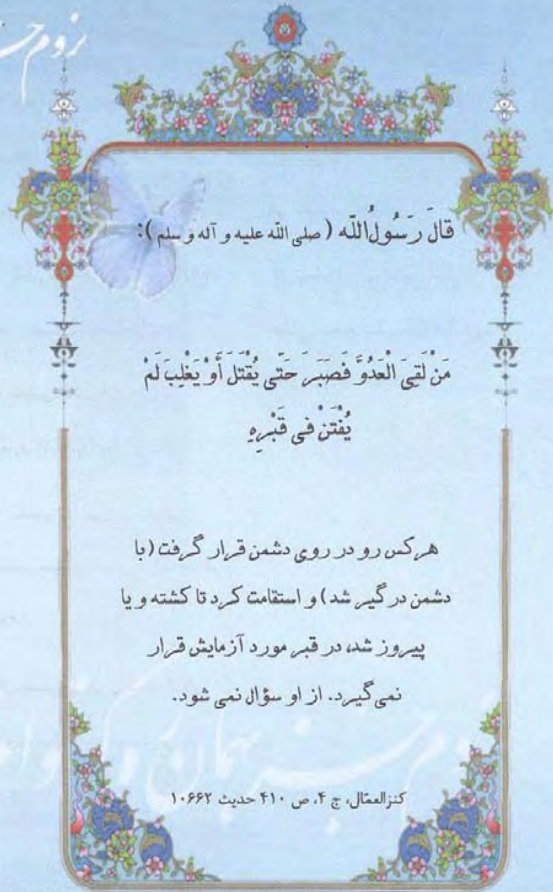 قالَ رَسُولُ اللّه (صلی اللّه علیه و آله و سلم):
مَنْ لَقِیَ الْعَدُوَّ فَصَبَرَ حَتّی یُقْتَلَ أَوْ یَغْلِبَ لَمْ
یُفْتَنْ فی قَبْرِهِ
هر کس رو در روی دشمن قرار گرفت (با
دشمن درگیر شد) و استقامت کرد تا کشته و یا
پیروز شد، در قبر مورد آزمایش قرار
نمی گیرد. از او سؤال نمی شود.
کنزالعمّال، ج ۴، ص ۴۱۰ حدیث ۱۰۶۶۲